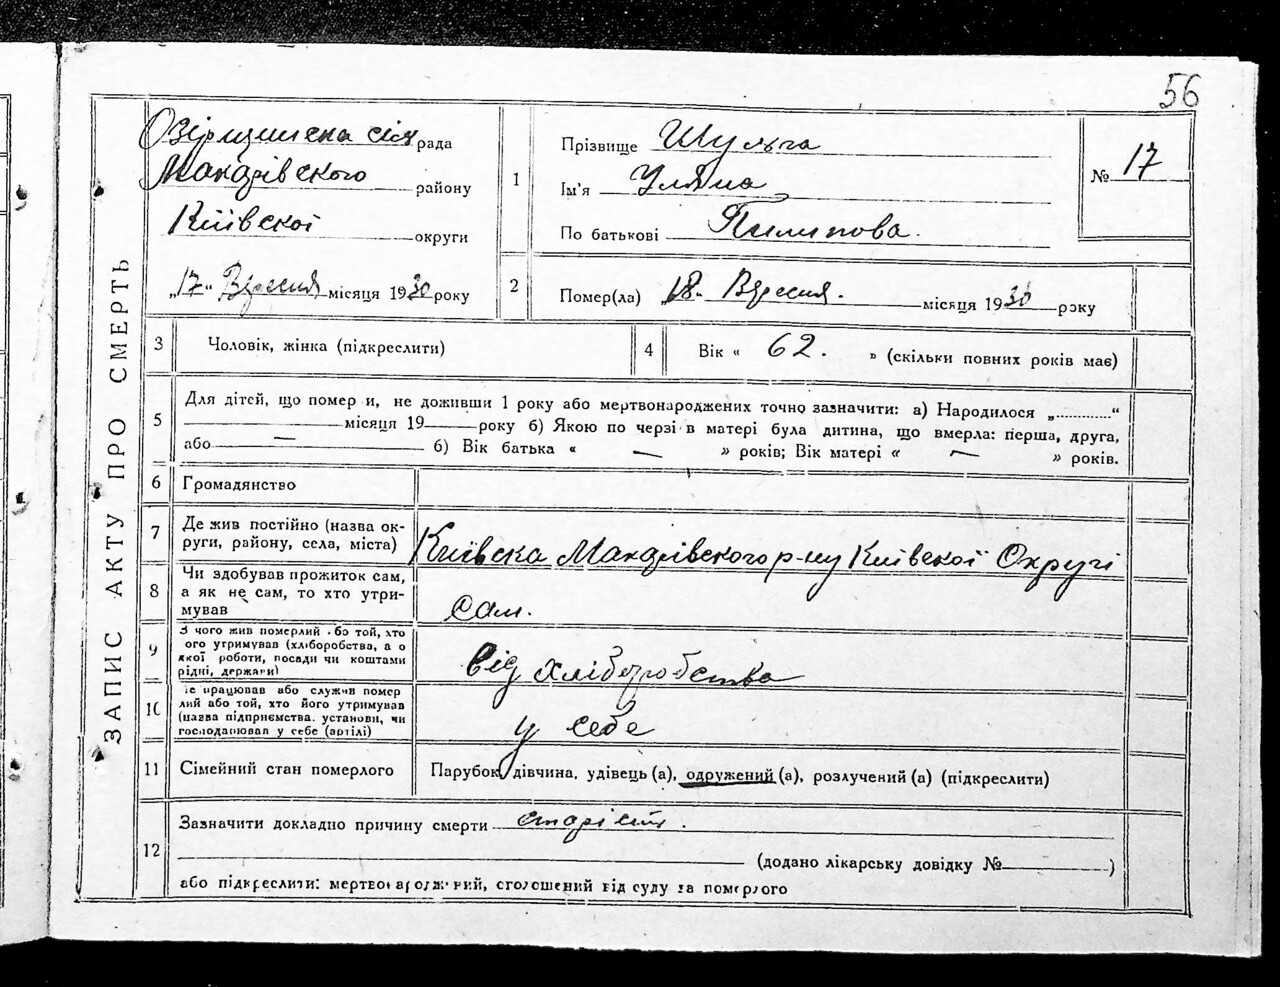 56
ЗАПИС АКТУ ПРО СМЕРТЬ
Озірщинска сіл рада
Макарівского району
Київскої округи
„17" Вересня місяця 1930 року
1
Прізвище Шульга
Ім'я Уляна
По батькові Пилипова.
№ 17
2
Помер(ла) 18. Вересня. місяця 1930 року
3
Чоловік, жінка (підкреслити)
4
Вік « 62. » (скільки повних років має)
5
Для дітей, що помер и, не доживши 1 року або мертвонароджених точно зазначити: а) Народилося „............“
——— місяця 19——року б) Якою по черзі в матері була дитина, що вмерла: перша, друга,
або ——— б) Вік батька « — » років; Вік матері « — » років.
6
Громадянство
7
Де жив постійно (назва ок-
руги, району, села, міста)
Київска Макарівского р-ну Київскої Округі
8
Чи здобував прожиток сам,
а як не сам, то хто утри-
мував
сам.
9
З чого жив померлий або той, хто
ого утримував (хліборобства, а о
якої роботи, посади чи коштами
рідні, держави)
від хліборобства
10
е працював або служив помер
лий або той, хто його утримував
(назва підприємства. установи, чи
господарював у себе (артілі)
у себе
11
Сімейний стан померлого
Парубок, дівчина, удівець (а), одружений (а), розлучений (а) (підкреслити)
12
Зазначити докладно причину смерти старість.
(додано лікарську довідку № )
або підкреслити: мертвонароджений, оголошений від суду за померлого